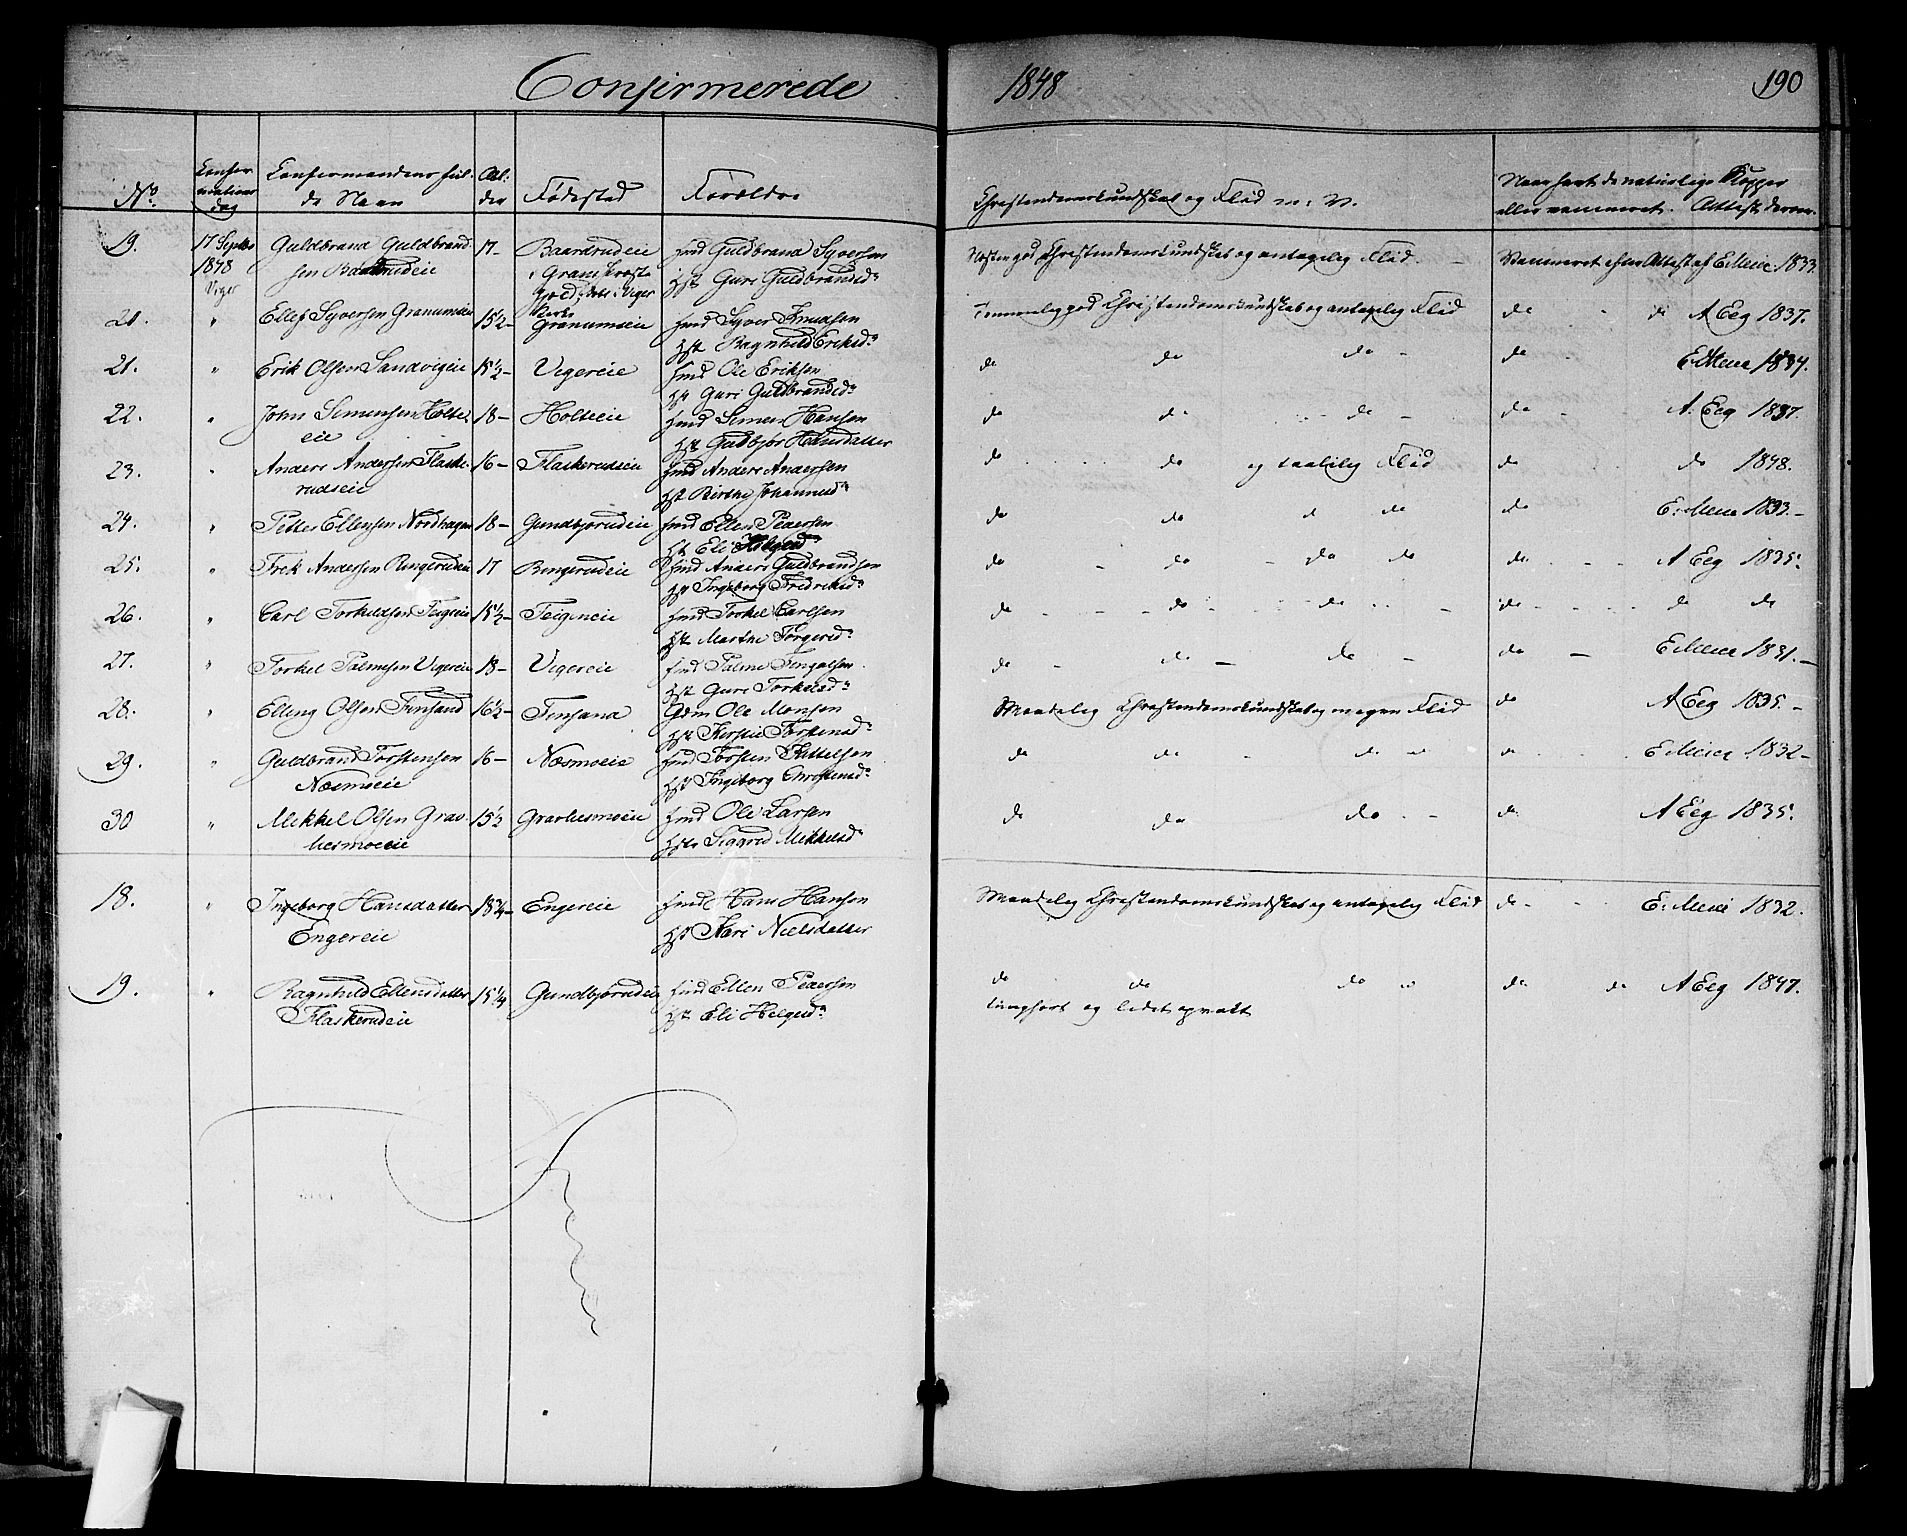 Confirmerede 1848 190
No. Confirmations dag Confirmandens fulde Navn Alder Fødested Forældre Christendomskundskab og Flid m: V. Naar havt de naturlige Kopper eller vaccineret. Attest derom.
19. 17 Septbr 1848 Viger Guldbrand Guldbrandsen 17- Baardrudeie Hmd Guldbrand Syversen Hst Guri Guldbrandsd. Christendomskundskab og antagelig Flid Vaccineret efter Attest af E Meier 1833.
20. " Ellef Syversen Granumseie 15½- Granumseie Hmd Syver Knudsen Hst Ragnhild Eriksd. Temmelig god Christendomskundskab og antagelig Flid do do A Eeg 1837.
21. " Erik Olsen Sandvigeie 15½- Vigereie Hmd Ole Eriksen Hst Guri Guldbrandsd. do do do - do - E Meier 1834.
22. " John Simensen Holteeie 18- Holteeie Hmd Simen Hansen Hst Guldbjør Hansdatter do do do - do - A. Eeg 1837.
23. " Anders Andersen Flaskerudseie 16- Flaskerudeie Hmd Anders Andersen Hst Birthe Johannesd. do do og taalelig Flid do do 1848.
24. " Petter Ellensen Nordhagen 18- Gundbjørudeie Hmd Ellen Pedersen Hst Eli Helgesd. do do do do E. Meier 1833.-
25. " Andersen Ringerudeie 17 Ringerudeie Hmd Anders Guldbrandsen Hst Ingeborg Fredriksd. do do - do do do - A Eeg 1835.
26. " Carl Torkildsen Teigeneie 15½- Teigeneie Hmd Torkel Carlsen Hst Marthe Torgersd. do do do do do do
27. " Torkel Palmesen Vigereie 18- Vigereie Hmd Palme Hst Guri Torkelsd. do - do - do - do - E Meier 1831.-
28. " Elling Olsen Finsand 16½- Finsand Gdm Ole Monsen Hst Kirstie Torstensd. Maadelig Christendomskundskab og megen Flid do A Eeg 1835.-
29. " Guldbrand Torstensen Næsmoeie 16- Næsmoeie Hmd Torsten Kittelsen Hst Ingeborg Christensd. do do - do do E Meier 1832-
30 " Mikkel Olsen Gravliesmoeeie 15½ Gravliesmoeie Hmd Ole Larsen Hst Siggrid Mikkelsd. do do do - do A Eeg 1835.
18. " Ingeborg Hansdatter Engereie 18¼- Engereie Hmd Hans Hansen Hst Kari Nielsdatter Maadelig Christendomskundskab og antagelig Flid do - E. Meier 1832.
19. " Ragnhild Ellensdatter Flaskerudeie 15¼ Gundbjørudeie Hmd Ellen Pedersen Hst Eli Helgesd. do do do do do A Eeg 1847.
tunghørt og lidet opvakt